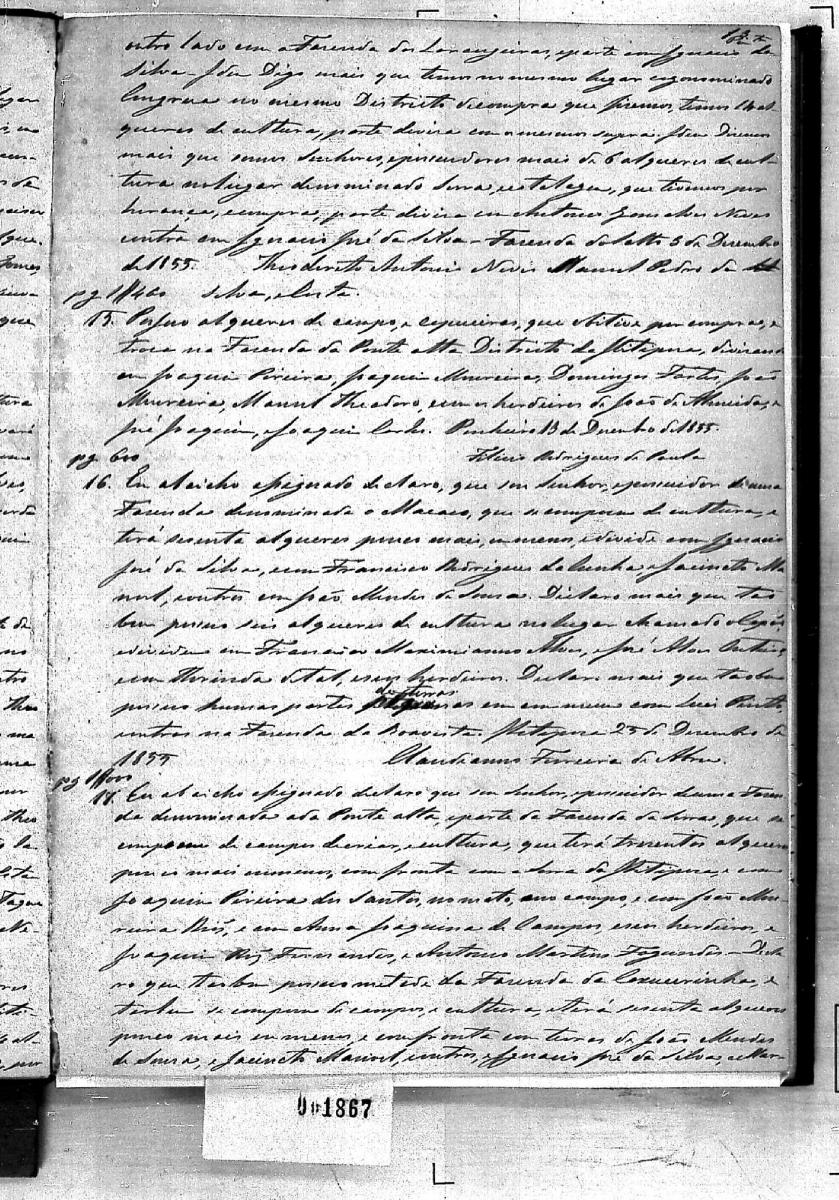 outro lado com a Fazenda das Larangeiras, e parte com Ignacio da
Silva - Idem Digo mais que temos no mesmo lugar
no mesmo Districto de compra que fizemos, temos 14 al-
queres de cultura, parte divisa com os mesmos supra. Idem Dizemos
mais que somos Senhores, e possuidores mais de 6 alqueres de cul-
tura no lugar denominado Serra, que tivemos por
herança, e compra, parte divisa com Antonio Gonsalves Neves
outra com Ignacio José da Silva - Fazenda do Salto 5 de Dezembro
de 1855. Theodoreto Antonio Nevis Manoel Pedro da
pg 1$460 Silva, e Costa.
15. Possuo alqueres de campo, e capueiras, que obitive por compras, e
troca na Fazenda da Ponte alta Districto da Ibitipoca, divisando
com Joaquim Pireira, Joaquim Moureira, Domingos Fortes, João
Moureira, Manoel Theodoro, e com os herdeiros de João de Almeida, e
José Joaquim, e Joaquim Carlos. Pinheiro 13 de Dezembro de 1855.
pg 600 Felicio Rodrigues de Paula
16. Eu abaicho aSignado declaro, que sou Senhor, e possuidor de uma
Fazenda denominada o Macaco, que se compoem de cultura, e
terá sesenta alqueres pouco mais, ou menos, e divide com Ignacio
José da Silva, e com Francisco Rodrigues da Cunha e Jacinto Ma-
noel, e outros com João Mendes de Sousa. Declaro mais que tao
bem possuo seis alqueres de cultura no lugar chamado o Capão
e divide com Francisco Maximianno Alves, e José Alves
e com Florinda de tal, e seus herdeiros. Declaro mais que taobem
possuo humas partes de terras em com Luis
e outros na Fazenda da Boavista. Ibitipoca 25 de Dezembro de
1855 Claudianno Ferreira de Abreu.
pg 1$000
17. Eu abaicho aSignado declaro que sou Senhor, e possuidor de uma Fazen-
da denominada a da Ponte alta, e parte da Fazenda da Serra, que se
compoem de campos de criar, e cultura, que terá trezentos alqueres
pouco mais ou menos, com fronta com a Serra da Ibitipoca, e com
Joaquim Pireira dos Santos, no mato, e no campo, e com João Mou-
reira Roiz, e com Anna Joaquina de Campos, e seus herdeiros, e
Joaquim Roiz Fernandes, e Antonio Martins Fagundes - Decla-
ro que taobem possuo metede da Fazenda da Caxueirinha, e
taobem se compoem de campos, e cultura, e terá sesenta alqueres
pouco mais ou menos, e comfronta com terras de João Mendes
de Sousa, e Jacinto Manoel, e outros, e Ignacio José da Silva, e Mar-
001867